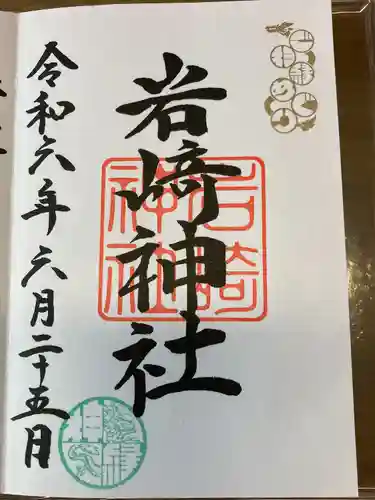 岩﨑神社
令和六年六月二十五日
岩﨑神社